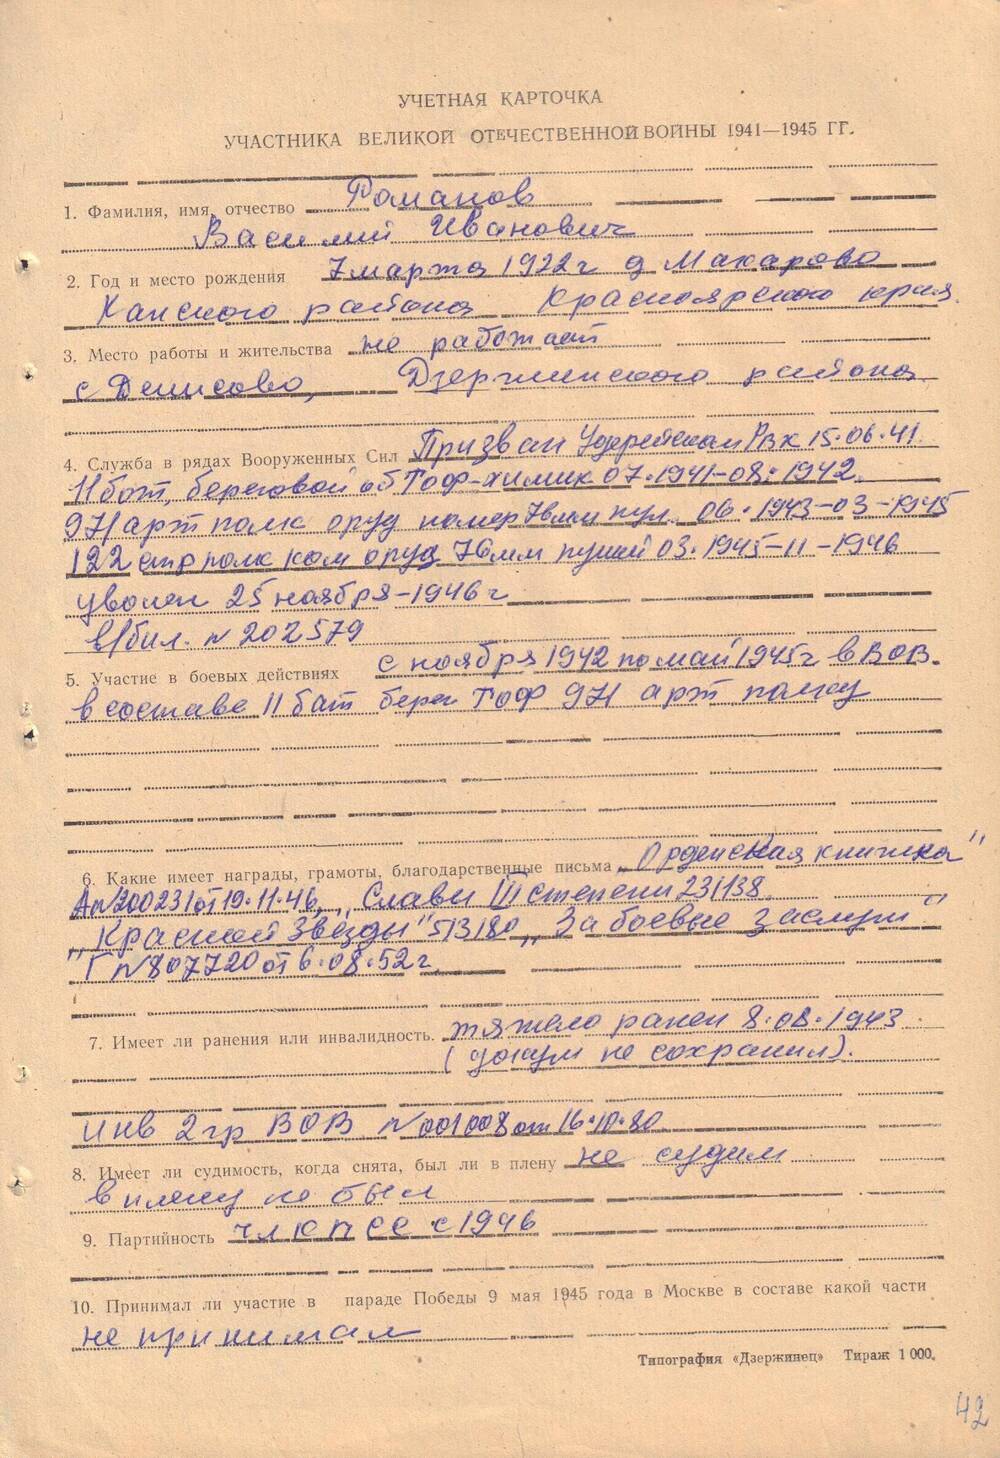 УЧЕТНАЯ КАРТОЧКА
УЧАСТНИКА ВЕЛИКОЙ ОТЕЧЕСТВЕННОЙ ВОЙНЫ 1941—1945 ГГ.
1. Фамилия, имя, отчество Романов
Василий Иванович
2. Год и место рождения 7 марта 1922 г д Макарово
Канского района Красноярского края.
3. Место работы и жительства не работает
с Денисово, Дзержинского района
4. Служба в рядах Вооруженных Сил Призван Удерейским РВК 15.06.41.
11 бат, береговой об ТОФ-химик 07.1941-08.1942.
971 арт полк оруд номер 76мм пуш. 06.1943-03-1945
122 стр полк ком оруд 76мм пушки 03.1945-11-1946
уволен 25 ноября-1946 г
в/бил. N 202579
5. Участие в боевых действиях с ноября 1942 по май 1945 г в ВОВ.
в составе 11 бат берег ТОФ 971 арт полку
6. Какие имеет награды, грамоты, благодарственные письма „Орденская книжка"
А N200231 от 19.11.46, „Славы III степени 231138.
„Красной Звезды" 513180 „За боевые заслуги"
Г N807720 от 6.08.52 г.
7. Имеет ли ранения или инвалидность. тяжело ранен 8.08.1943.
(докум не сохранил).
инв 2 гр ВОВ N 001008 от 16.10.80
8. Имеет ли судимость, когда снята, был ли в плену не судим
в плену не был
9. Партийность чл КПСС с 1946
10. Принимал ли участие в параде Победы 9 мая 1945 года в Москве в составе какой части
не принимал
Типография «Дзержинец» Тираж 1 000.
42